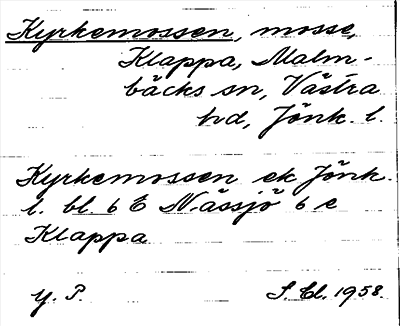 Kyrkemossen, mosse,
Klappa, Malm-
bäcks sn, Västra
hd, Jönk. l.
Kyrkemossen ek Jönk.
l. bl. 6 E Nässjö 6 e
Klappa
Y. P.
S. Cl. 1958.